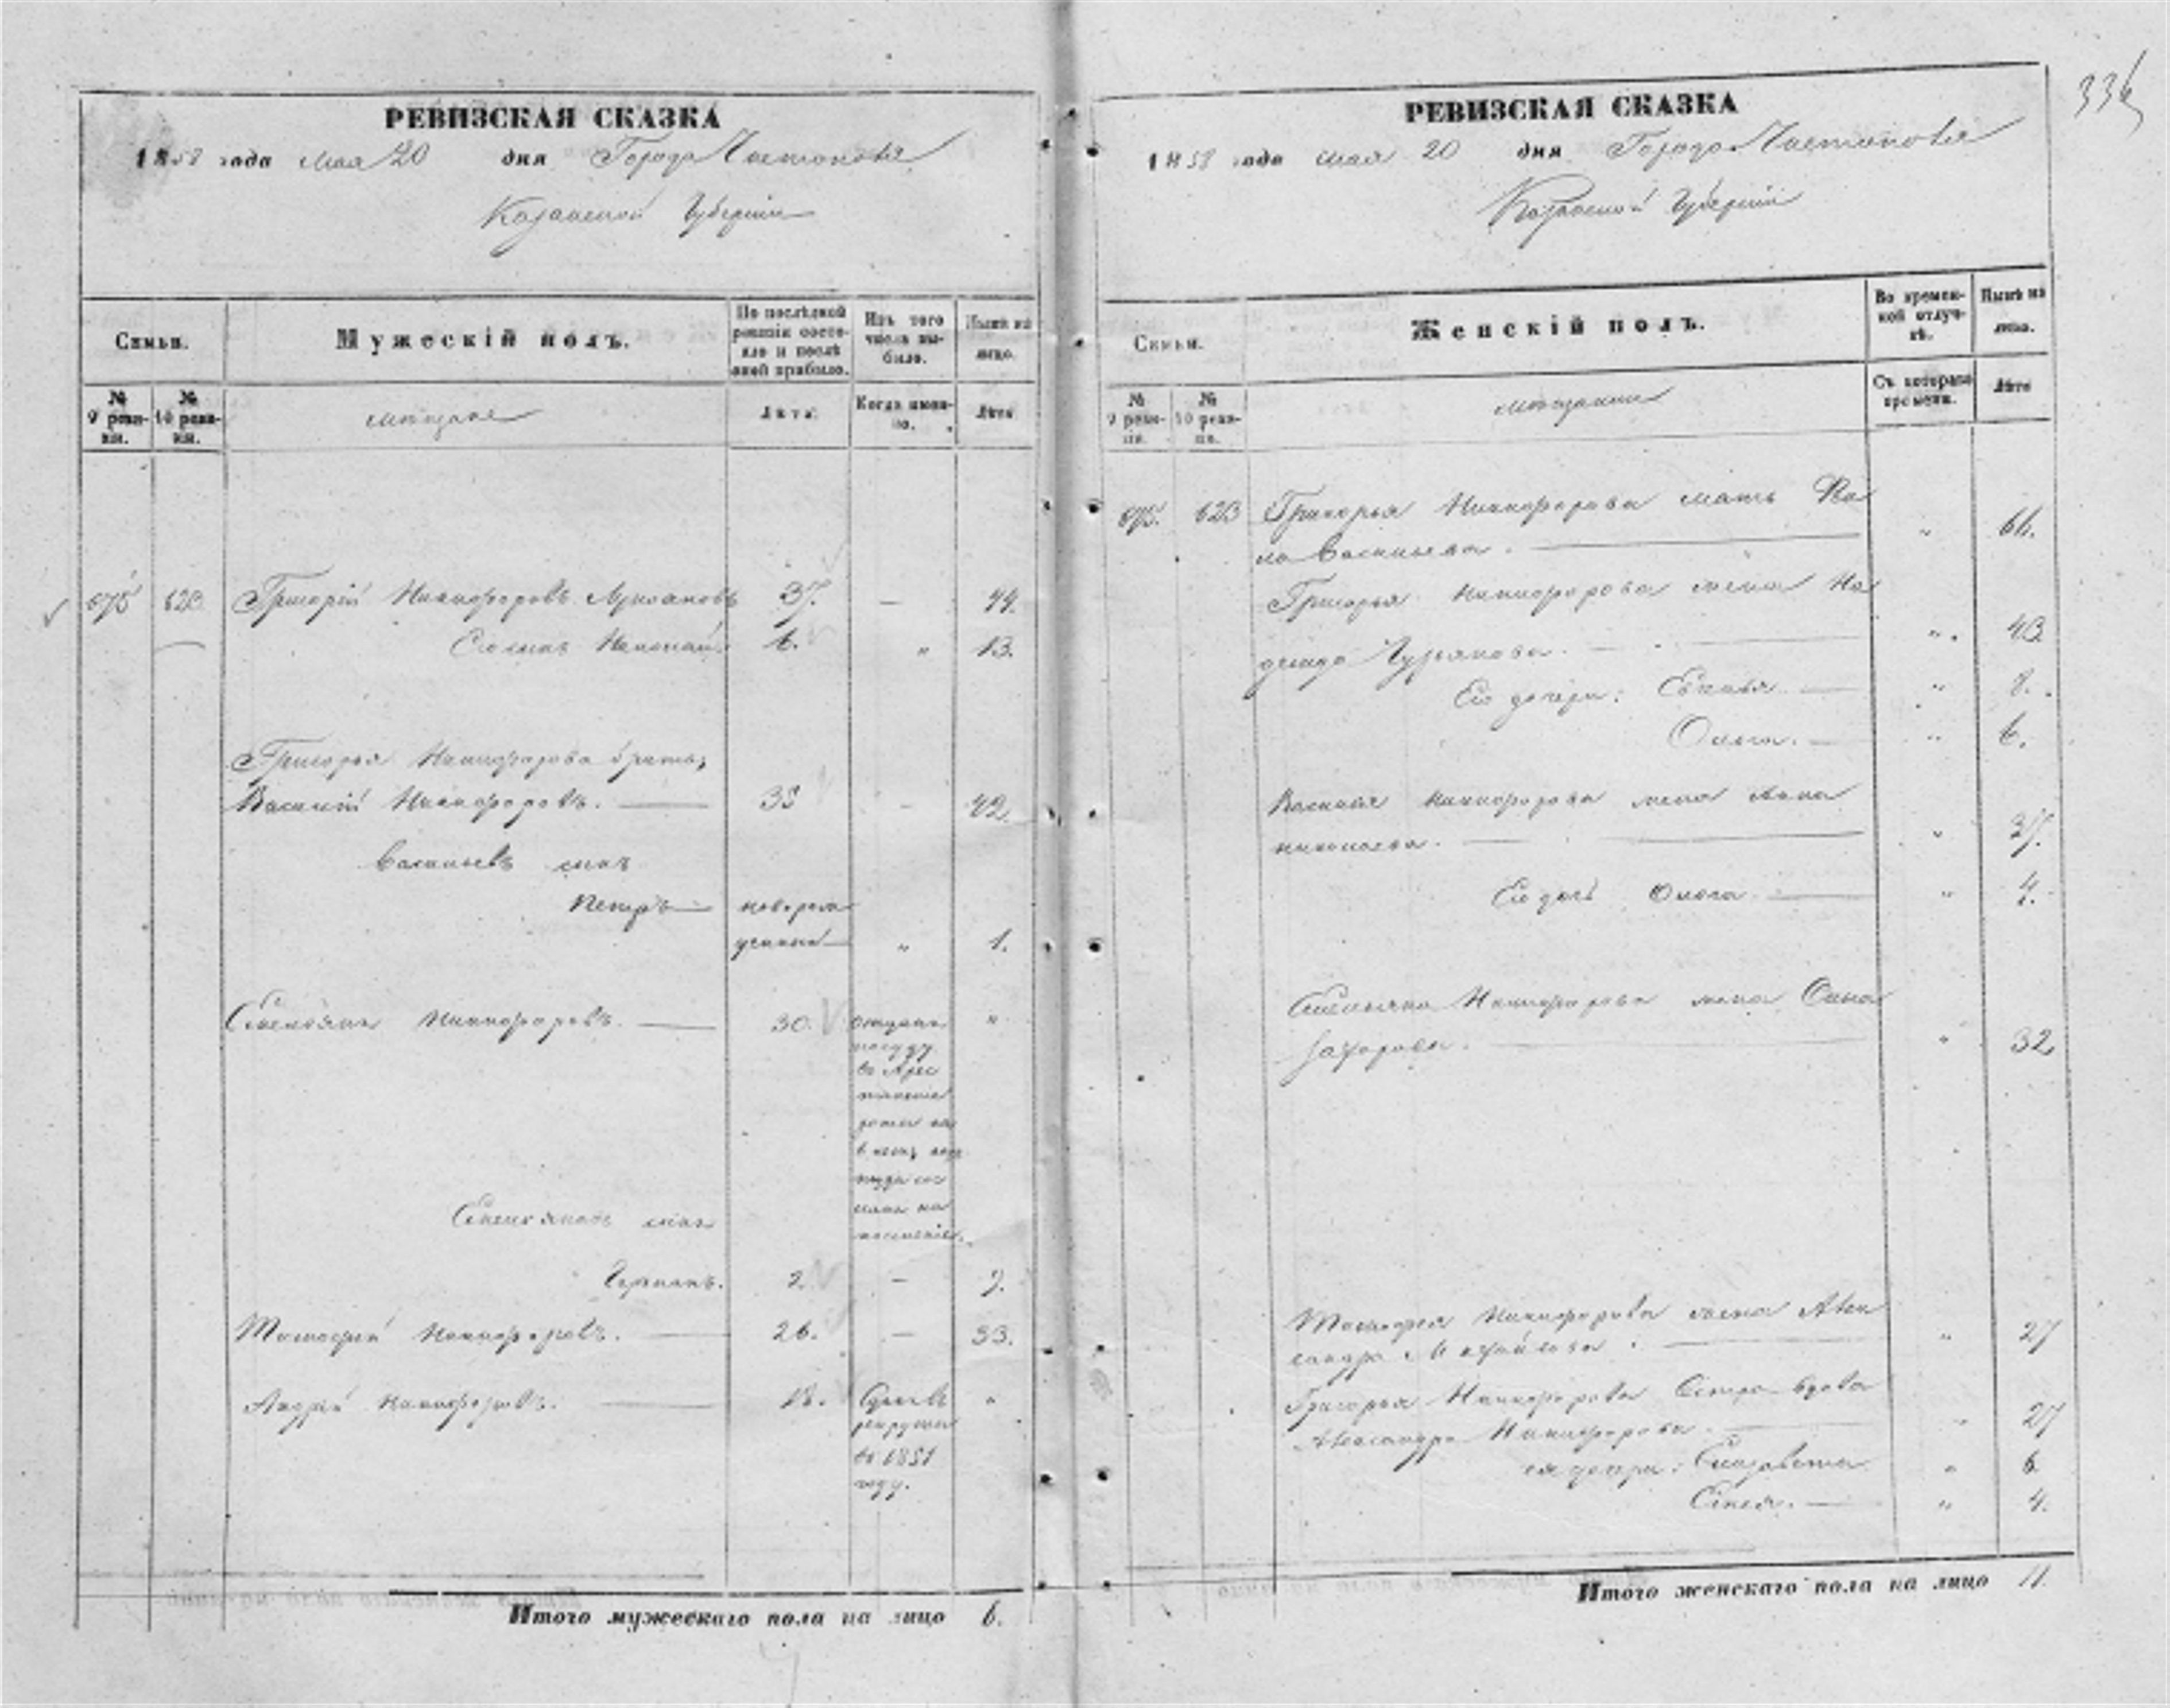 РЕВИЗСКАЯ СКАЗКА
1858 года мая 20 дня Города Чистополя
Казанской Губернии
Семьи.
Мужескій полъ.
По послѣдней ревизіи состояло и послѣ оной прибыло.
Изъ того числа выбыло.
Нынѣ на лицо.
№ 9 ревизіи.
№ 10 ревизіи.
мѣщане
Лѣта.
Когда именно.
Лѣта
675 623 Григорій Никифоровъ 37. — 44.
Его сынъ Николай. 6. " 13.
Григорья Никифорова братья,
Василій Никифоровъ. — 35 — 42.
Васильевъ сынъ
Петръ — новорож
денный — " 1.
Емельянъ Никифоровъ. — 30. "
отданъ
по суду
въ Арес
тантскія
роты
Емельяновъ сынъ
Германъ. 2. — 9.
Тимофей Никифоровъ. — 26. — 33.
Андрей Никифоровъ. — 18. "
рекруты
въ 1851
году.
Итого мужескаго пола на лицо 6.
336
РЕВИЗСКАЯ СКАЗКА
1858 года мая 20 дня Города Чистополя
Казанской Губерніи
Семьи.
Женскій полъ.
Во временной отлучкѣ.
Нынѣ на лицо.
№ 9 ревизіи.
№ 10 ревизіи.
мѣщанки
Съ котораго времени.
Лѣта
675. 623 Григорья Никифорова мать
Васильева. — " 66.
Григорья Никифорова жена На
дежда Гурьянова. — " 43
Его дочери: — " 8.
Ольга. — " 6.
Василья Никифорова жена Анна
Николаева. — " 37.
Его дочь Ольга — " 4.
Емельяна Никифорова жена
Захарова. — " 32
Тимофея Никифорова жена Алек
сандра Михайлова. — " 27
Григорья Никифорова Сестра вдова
Александра Никифорова — " 27
ея дочери: Елизавета " 6
— " 4.
Итого женскаго пола на лицо 11.